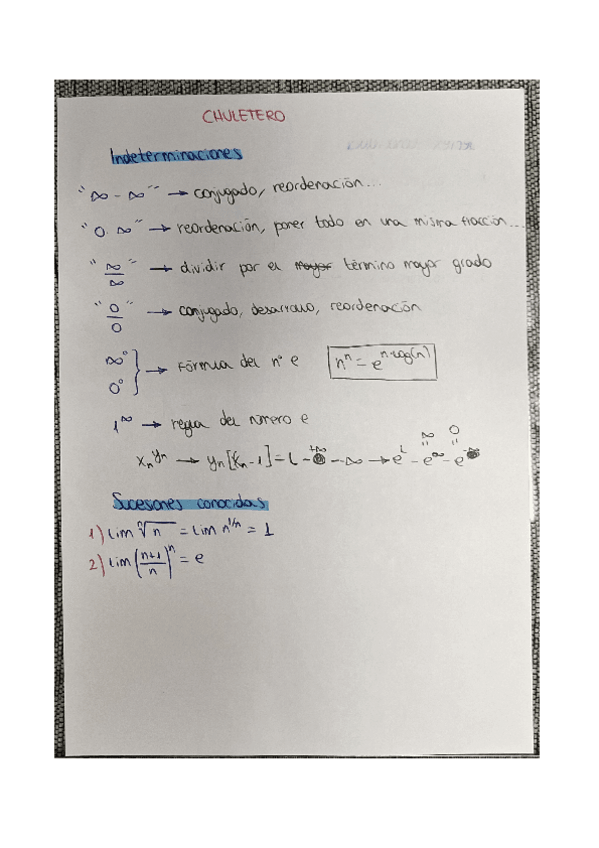 CHULETERO
Indeterminaciones
"∞ - ∞" → conjugado, reordenación...
"0·∞" → reordenación, poner todo en una misma fracción...
"∞/∞" → dividir por el mayor término mayor grado
"0/0" → conjugado, desarrollo, reordenación
∞⁰
0⁰ } → Fórmula del nº e n^n = e^(n·log(n))
1^∞ → regla del número e
x_n^(y_n) → y_n [x_n - 1] = L - +∞ - -∞ → e^L - e^∞ - e^-∞
∞ 0
Sucesiones conocidas
1) lim ⁿ√n = lim n^(1/n) = 1
2) lim ((n+1)/n)^n = e